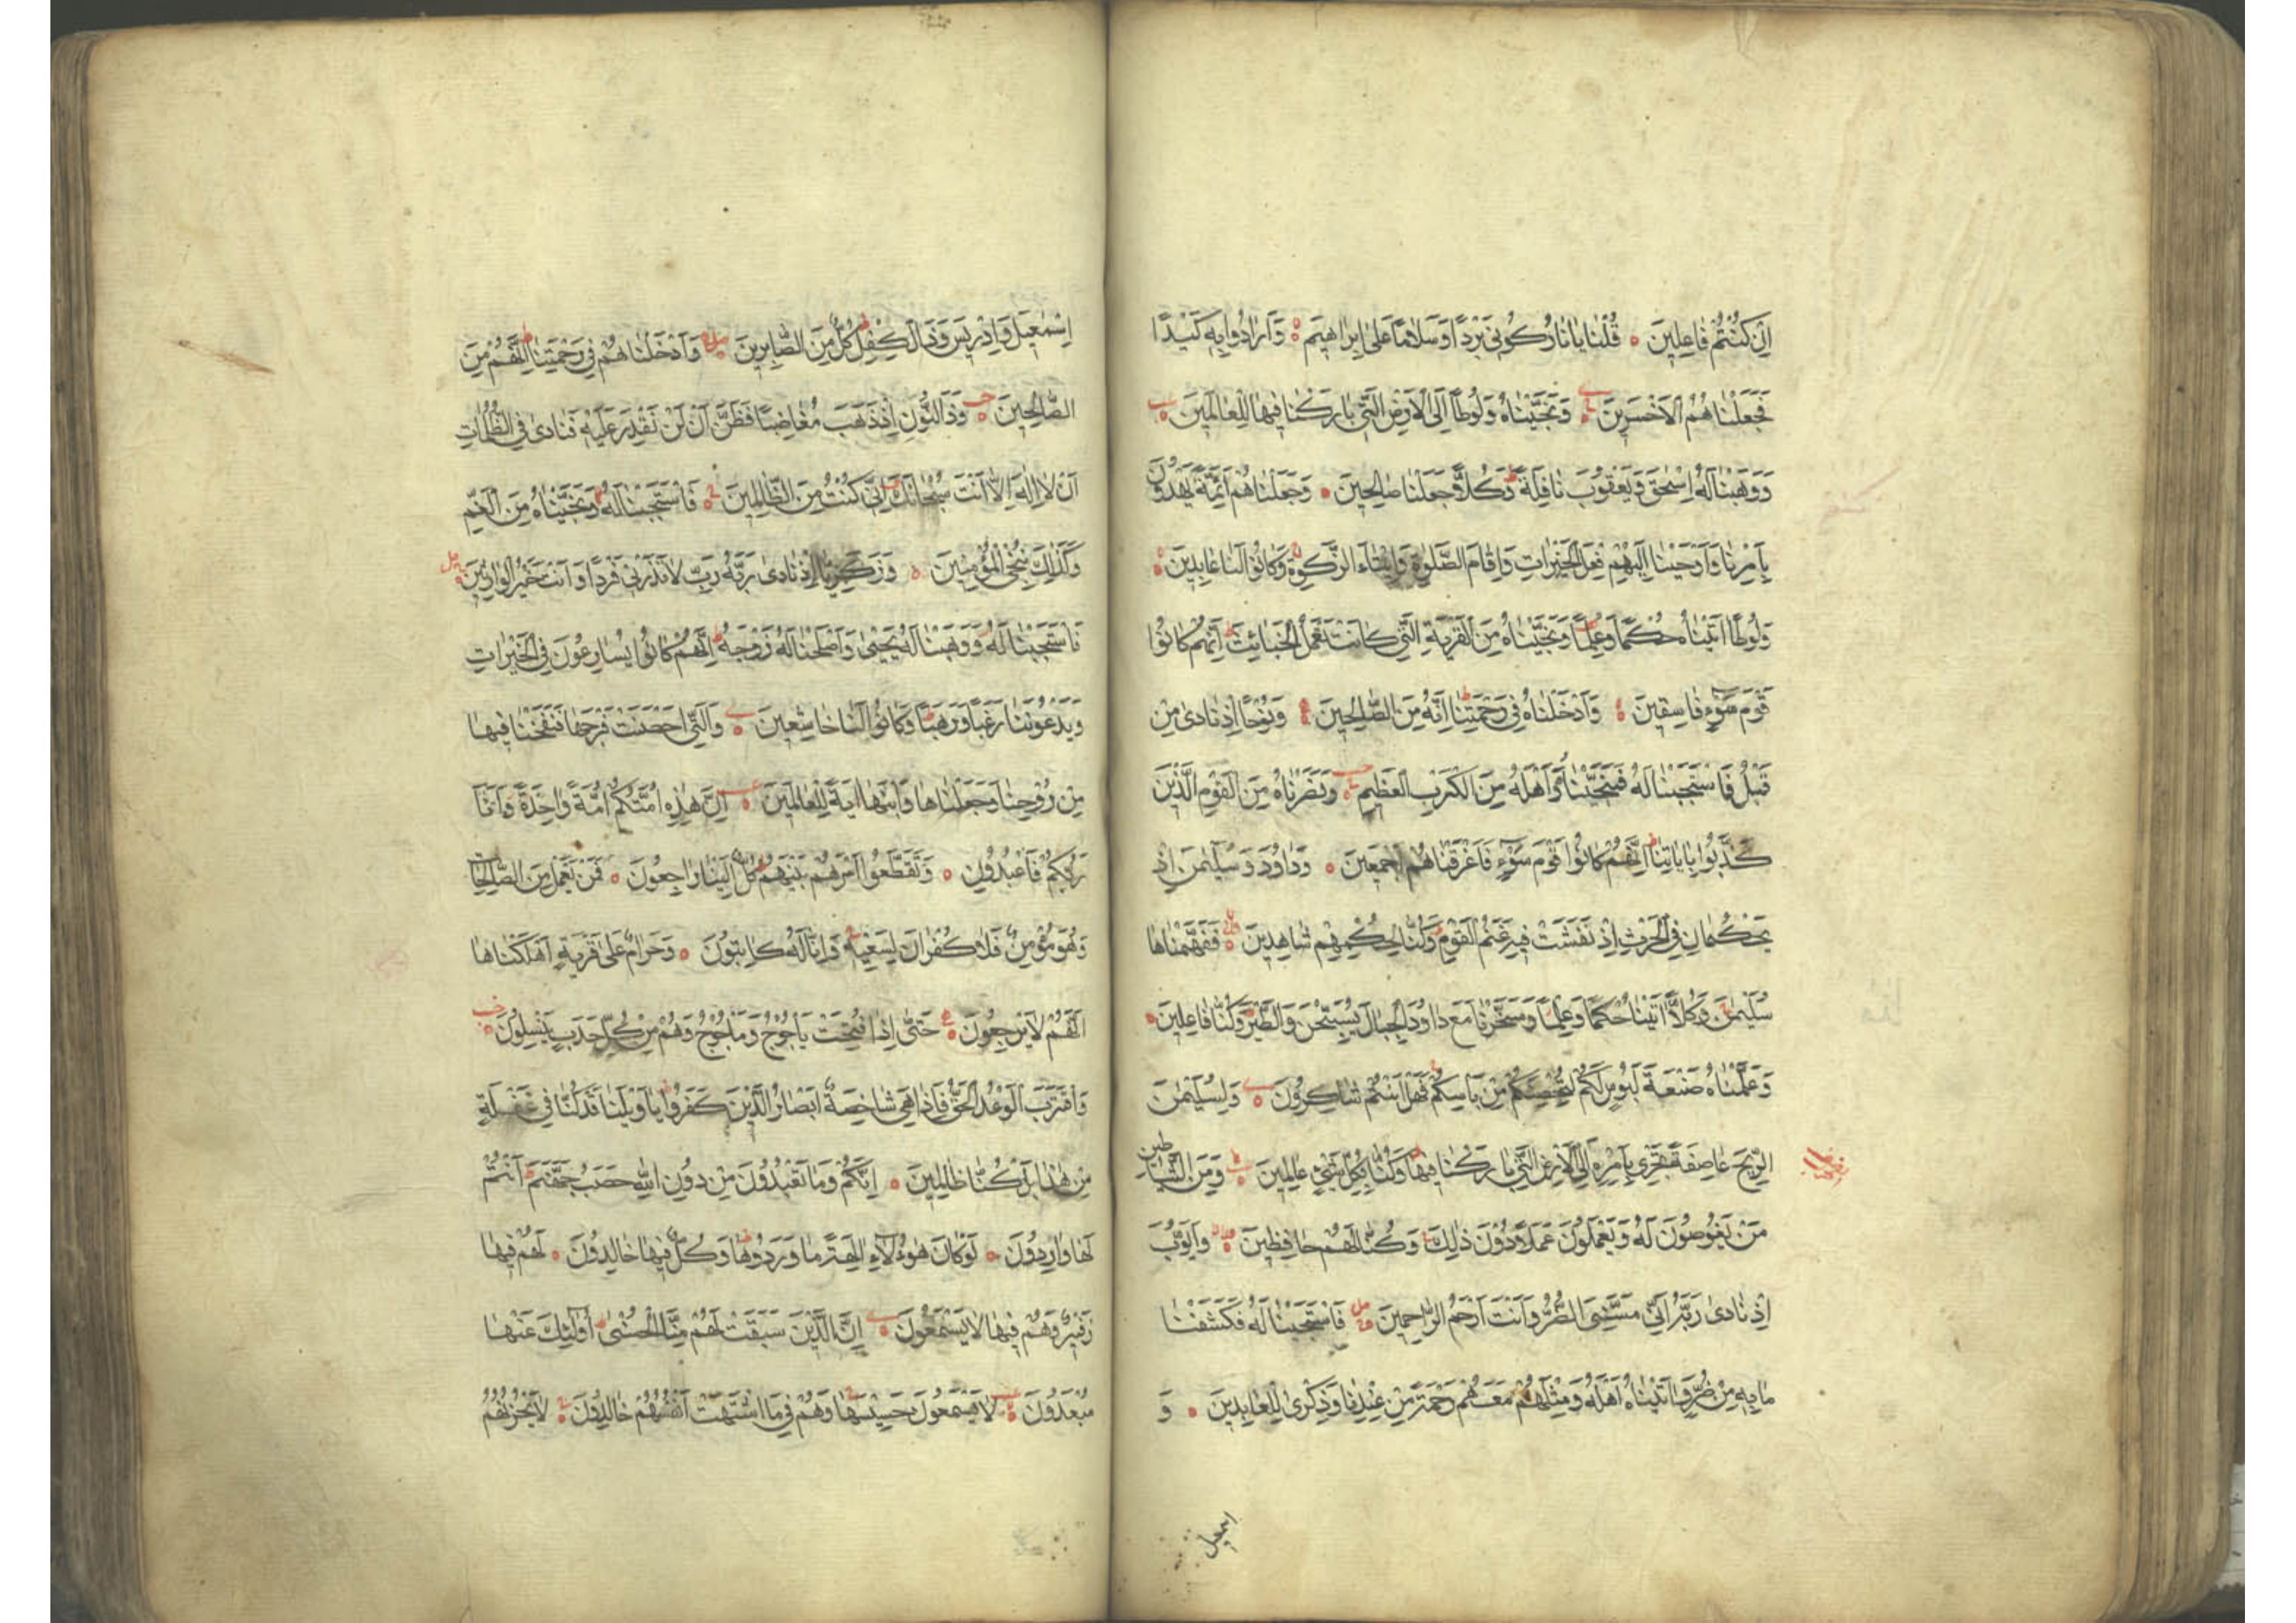 اِنْ كُنْتُمْ فَاعِلِينَ قُلْنَا يَا نَارُ كُونِي بَرْدًا وَسَلَامًا عَلَى اِبْرَاهِيمَ وَاَرَادُوا بِهِ كَيْدًا
فَجَعَلْنَاهُمُ الْاَخْسَرِينَ وَنَجَّيْنَاهُ وَلُوطًا اِلَى الْاَرْضِ الَّتِي بَارَكْنَا فِيهَا لِلْعَالَمِينَ
وَوَهَبْنَا لَهُ اِسْحٰقَ وَيَعْقُوبَ نَافِلَةً وَكُلًّا جَعَلْنَا صَالِحِينَ وَجَعَلْنَاهُمْ اَئِمَّةً يَهْدُونَ
بِاَمْرِنَا وَاَوْحَيْنَا اِلَيْهِمْ فِعْلَ الْخَيْرَاتِ وَاِقَامَ الصَّلٰوةِ وَاِيتَاءَ الزَّكٰوةِ وَكَانُوا لَنَا عَابِدِينَ
وَلُوطًا اٰتَيْنَاهُ حُكْمًا وَعِلْمًا وَنَجَّيْنَاهُ مِنَ الْقَرْيَةِ الَّتِي كَانَتْ تَعْمَلُ الْخَبَائِثَ اِنَّهُمْ كَانُوا
قَوْمَ سَوْءٍ فَاسِقِينَ وَاَدْخَلْنَاهُ فِي رَحْمَتِنَا اِنَّهُ مِنَ الصَّالِحِينَ وَنُوحًا اِذْ نَادٰى مِنْ
قَبْلُ فَاسْتَجَبْنَا لَهُ فَنَجَّيْنَاهُ وَاَهْلَهُ مِنَ الْكَرْبِ الْعَظِيمِ وَنَصَرْنَاهُ مِنَ الْقَوْمِ الَّذِينَ
كَذَّبُوا بِاٰيَاتِنَا اِنَّهُمْ كَانُوا قَوْمَ سَوْءٍ فَاَغْرَقْنَاهُمْ اَجْمَعِينَ وَدَاوُدَ وَسُلَيْمٰنَ اِذْ
يَحْكُمَانِ فِي الْحَرْثِ اِذْ نَفَشَتْ فِيهِ غَنَمُ الْقَوْمِ وَكُنَّا لِحُكْمِهِمْ شَاهِدِينَ فَفَهَّمْنَاهَا
سُلَيْمٰنَ وَكُلًّا اٰتَيْنَا حُكْمًا وَعِلْمًا وَسَخَّرْنَا مَعَ دَاوُدَ الْجِبَالَ يُسَبِّحْنَ وَالطَّيْرَ وَكُنَّا فَاعِلِينَ
وَعَلَّمْنَاهُ صَنْعَةَ لَبُوسٍ لَكُمْ لِتُحْصِنَكُمْ مِنْ بَاْسِكُمْ فَهَلْ اَنْتُمْ شَاكِرُونَ وَلِسُلَيْمٰنَ
الرِّيحَ عَاصِفَةً تَجْرِي بِاَمْرِهِ اِلَى الْاَرْضِ الَّتِي بَارَكْنَا فِيهَا وَكُنَّا بِكُلِّ شَيْءٍ عَالِمِينَ وَمِنَ الشَّيَاطِينِ
مَنْ يَغُوصُونَ لَهُ وَيَعْمَلُونَ عَمَلًا دُونَ ذٰلِكَ وَكُنَّا لَهُمْ حَافِظِينَ وَاَيُّوبَ
اِذْ نَادٰى رَبَّهُ اَنِّي مَسَّنِيَ الضُّرُّ وَاَنْتَ اَرْحَمُ الرَّاحِمِينَ فَاسْتَجَبْنَا لَهُ فَكَشَفْنَا
مَا بِهِ مِنْ ضُرٍّ وَاٰتَيْنَاهُ اَهْلَهُ وَمِثْلَهُمْ مَعَهُمْ رَحْمَةً مِنْ عِنْدِنَا وَذِكْرٰى لِلْعَابِدِينَ وَ
اسمعيل
اِسْمٰعِيلَ وَاِدْرِيسَ وَذَا الْكِفْلِ كُلٌّ مِنَ الصَّابِرِينَ وَاَدْخَلْنَاهُمْ فِي رَحْمَتِنَا اِنَّهُمْ مِنَ
الصَّالِحِينَ وَذَا النُّونِ اِذْ ذَهَبَ مُغَاضِبًا فَظَنَّ اَنْ لَنْ نَقْدِرَ عَلَيْهِ فَنَادٰى فِي الظُّلُمَاتِ
اَنْ لَا اِلٰهَ اِلَّا اَنْتَ سُبْحَانَكَ اِنِّي كُنْتُ مِنَ الظَّالِمِينَ فَاسْتَجَبْنَا لَهُ وَنَجَّيْنَاهُ مِنَ الْغَمِّ
وَكَذٰلِكَ نُنْجِي الْمُؤْمِنِينَ وَزَكَرِيَّا اِذْ نَادٰى رَبَّهُ رَبِّ لَا تَذَرْنِي فَرْدًا وَاَنْتَ خَيْرُ الْوَارِثِينَ
فَاسْتَجَبْنَا لَهُ وَوَهَبْنَا لَهُ يَحْيٰى وَاَصْلَحْنَا لَهُ زَوْجَهُ اِنَّهُمْ كَانُوا يُسَارِعُونَ فِي الْخَيْرَاتِ
وَيَدْعُونَنَا رَغَبًا وَرَهَبًا وَكَانُوا لَنَا خَاشِعِينَ وَالَّتِي اَحْصَنَتْ فَرْجَهَا فَنَفَخْنَا فِيهَا
مِنْ رُوحِنَا وَجَعَلْنَاهَا وَابْنَهَا اٰيَةً لِلْعَالَمِينَ اِنَّ هٰذِهِ اُمَّتُكُمْ اُمَّةً وَاحِدَةً وَاَنَا
رَبُّكُمْ فَاعْبُدُونِ وَتَقَطَّعُوا اَمْرَهُمْ بَيْنَهُمْ كُلٌّ اِلَيْنَا رَاجِعُونَ فَمَنْ يَعْمَلْ مِنَ الصَّالِحَاتِ
وَهُوَ مُؤْمِنٌ فَلَا كُفْرَانَ لِسَعْيِهِ وَاِنَّا لَهُ كَاتِبُونَ وَحَرَامٌ عَلٰى قَرْيَةٍ اَهْلَكْنَاهَا
اَنَّهُمْ لَا يَرْجِعُونَ حَتّٰى اِذَا فُتِحَتْ يَاْجُوجُ وَمَاْجُوجُ وَهُمْ مِنْ كُلِّ حَدَبٍ يَنْسِلُونَ
وَاقْتَرَبَ الْوَعْدُ الْحَقُّ فَاِذَا هِيَ شَاخِصَةٌ اَبْصَارُ الَّذِينَ كَفَرُوا يَا وَيْلَنَا قَدْ كُنَّا فِي غَفْلَةٍ
مِنْ هٰذَا بَلْ كُنَّا ظَالِمِينَ اِنَّكُمْ وَمَا تَعْبُدُونَ مِنْ دُونِ اللّٰهِ حَصَبُ جَهَنَّمَ اَنْتُمْ
لَهَا وَارِدُونَ لَوْ كَانَ هٰؤُلَاءِ اٰلِهَةً مَا وَرَدُوهَا وَكُلٌّ فِيهَا خَالِدُونَ لَهُمْ فِيهَا
زَفِيرٌ وَهُمْ فِيهَا لَا يَسْمَعُونَ اِنَّ الَّذِينَ سَبَقَتْ لَهُمْ مِنَّا الْحُسْنٰى اُولٰئِكَ عَنْهَا
مُبْعَدُونَ لَا يَسْمَعُونَ حَسِيسَهَا وَهُمْ فِي مَا اشْتَهَتْ اَنْفُسُهُمْ خَالِدُونَ لَا يَحْزُنُهُمُ